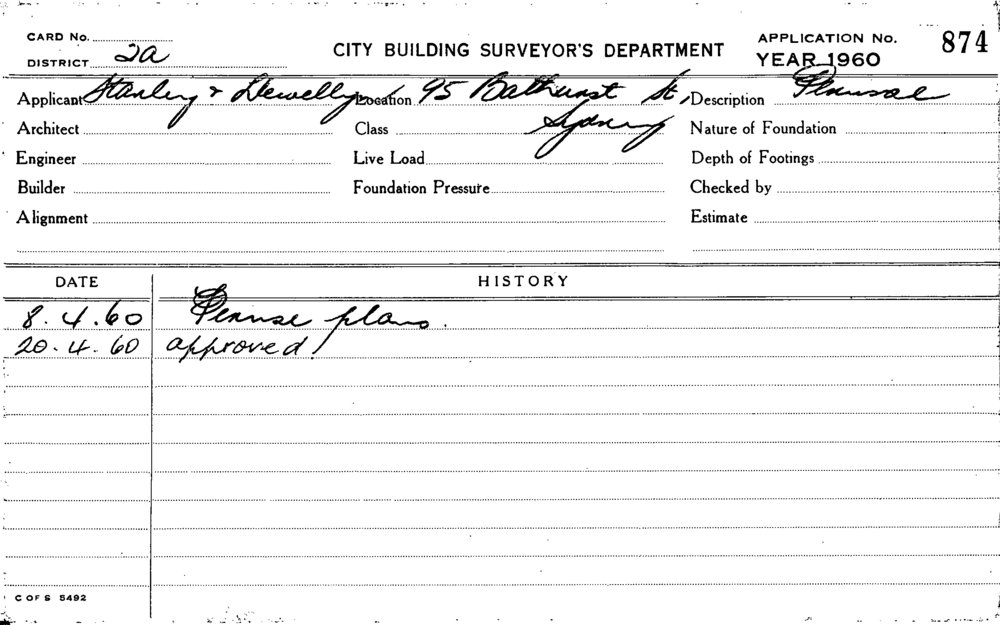 CARD No.
DISTRICT 2a
CITY BUILDING SURVEYOR'S DEPARTMENT
APPLICATION No. 874
YEAR 1960
Applicant Stanley & Llewellyn Location 95 Bathurst St, Sydney Description Perusal
Architect Class Nature of Foundation
Engineer Live Load Depth of Footings
Builder Foundation Pressure Checked by
Alignment Estimate
DATE HISTORY
8.4.60 Peruse plans.
20.4.60 approved!
C OF S 5492